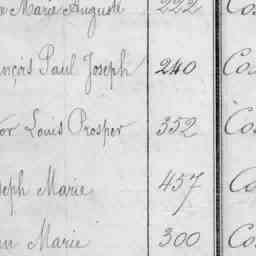 Marie Auguste 222 Co
nçois Paul Joseph 240 Co
or Louis Prosper 352 Co
seph Marie 457 Co
Marie 300 Co